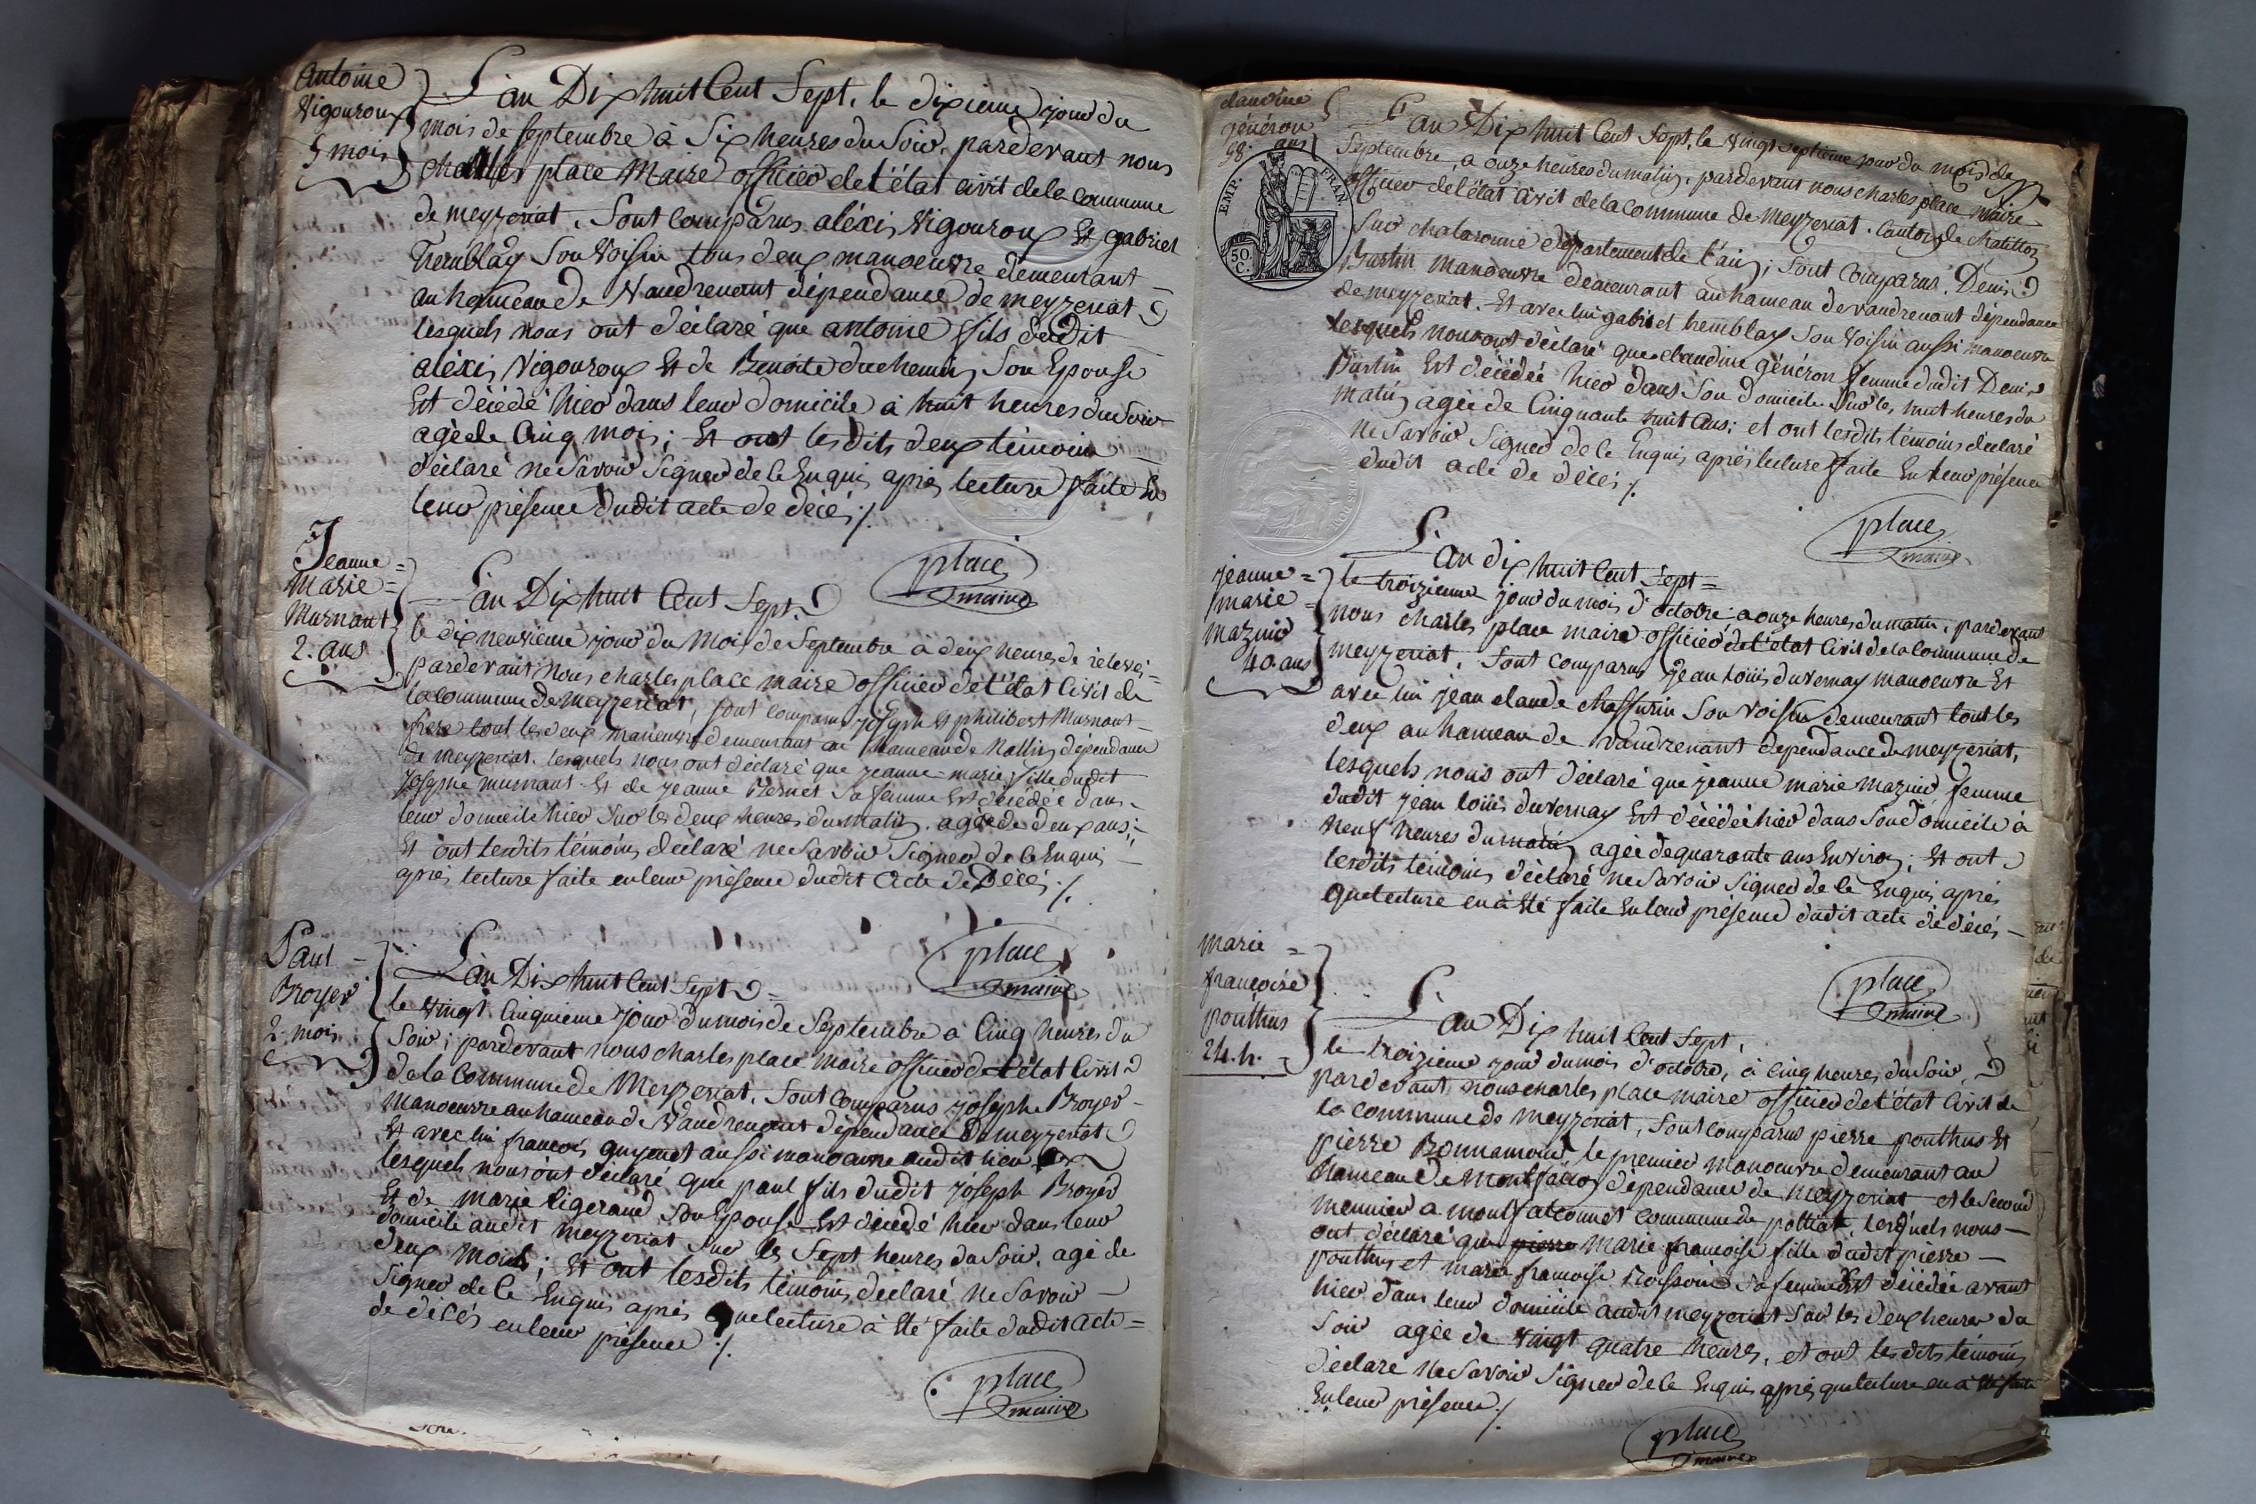 antoine
Vigouroux
5 mois
L'an Dix huit Cent Sept, le dixieme jour du
mois de septembre à Six heures du Soir, pardevant nous
charles place Maire officier de l'état civil de la commune
de meyzeriat, Sont comparus aléxis Vigouroux Et gabriel
hemblay Son Voisin tous deux manoeuvre demeurant
au hameau de Vaudrenant dépendance de meyzeriat
lesquels nous ont déclaré que antoine fils dudit
aléxis Vigouroux Et de Benoite duchemin Son Epouse
Est décédé hier dans leur domicile à huit heures du Soir
agé de Cinq mois; Et ont lesdits deux témoins
déclaré ne Savoir Signer de ce Enquis après lecture faite En
leur présence dudit acte de décès ./.
place
maire
Jeanne =
Marie =
Murnant
2. ans
L'an Dix huit Cent Sept
le dix neuvieme jour du Mois de Septembre à deux heures de relevé =
pardevant Nous charles place maire officier de l'état Civil de
la commune de meyzeriat, sont comparus joseph Et philibert Murnant
frere tout les deux manoeuvre demeurant au hameau de Nallin dépendance
de meyzeriat. lesquels nous ont déclaré que jeanne marie fille dudit
Josephe murnant Et de jeanne Vernet Sa femme Est décédée dans
leur domicile hier Sur les deux heures du matin agée de deux ans;
Et ont lesdits témoins déclaré ne Savoir Signer de ce Enquis
après lecture faite en leur présence dudit Acte de Décès ./.
place
maire
Paul
Broyer
2. mois
L'an Dix huit Cent Sept =
le vingt Cinquieme jour du mois de Septembre à Cinq heures du
Soir; pardevant nous charles place maire officier de l'état Civil
de la Commune de Meyzeriat, Sont Comparus joseph Broyer
manoeuvre au hameau de Vaudrenant dépendance de meyzeriat
Et avec lui françois guyenet aussi manoeuvre audit lieu
lesquels nous ont déclaré que paul fils dudit joseph Broyer
Et de marie ligeraud Son Epouse Est décédé hier dans leur
domicile audit meyzeriat Sur les Sept heures du Soir, agé de
deux mois; Et ont lesdits témoins déclaré Ne Savoir
Signer de Ce Enquis après que lecture à Eté faite dudit acte =
de décés en leur présence ./.
place
maire
claudine
généron
58. ans
EMP. FRAN.
50. C.
L'an Dix huit Cent Sept, le vingt septieme jour du mois de
Septembre, a onze heures du matin. pardevant nous charles place maire
officier de l'état Civil de la commune de Meyzeriat. Canton de chatillon
Sur chalaronne département de l'ain; Sont Comparus. Denis
Burtin manoeuvre demeurant au hameau de vaudrenant dépendance
de meyzeriat. Et avec lui gabriel hemblay Son Voisin aussi manoeuvre
lesquels nous ont déclaré que claudine généron femme dudit Denis
Burtin Est décédée hier dans Son domicile Sur les huit heures du
matin agée de Cinquante huit ans; et ont lesdits témoins déclaré
Ne Savoir Signer de ce Enquis après lecture faite En leur présence
dudit acte de décès ./.
place
maire
jeanne =
marie =
mazuir
40. ans
L'an dix huit Cent Sept =
le troizieme jour du mois d'octobre a onze heures du matin, pardevant
nous charles place maire officier de l'état Civil de la Commune de
meyzeriat, Sont comparus jean louis duvernay manoeuvre Et
avec lui jean claude chaffurin Son Voisin demeurant tout les
deux au hameau de Vaudrenant dépendance de meyzeriat,
lesquels nous ont déclaré que jeanne marie mazuir femme
dudit jean louis duvernay Est décédée hier dans Son domicile à
neuf heures du matin agée de quarante ans Environ; Et ont
lesdits témoins déclaré ne Savoir Signer de ce Enquis après
que lecture en à Eté faite En leur présence dudit acte de décès —
place
maire
marie =
françoise
pouthus
24. h.
L'an Dix huit Cent Sept,
le troizieme jour du mois d'octobre, à Cinq heures du Soir
pardevant nous charles place maire officier de l'état Civil de
la commune de meyzeriat, Sont comparus pierre pouthus Et
pierre Bonnamour le premier manoeuvre demeurant au
hameau de Montfalcon dépendance de Meyzeriat et le Second
meunier a montfalconnet commune de polliat, lesquels nous —
ont déclaré que pierre marie françoise fille dudit pierre —
pouthus et marie francoise Sa femme Est décédée avant
hier dans leur domicile audit meyzeriat Sur les deux heures du
Soir agée de vingt quatre heures, et ont lesdits témoins
déclare Ne Savoir Signer de ce Enquis après que lecture en à Eté faite
En leur présence ./.
place
maire